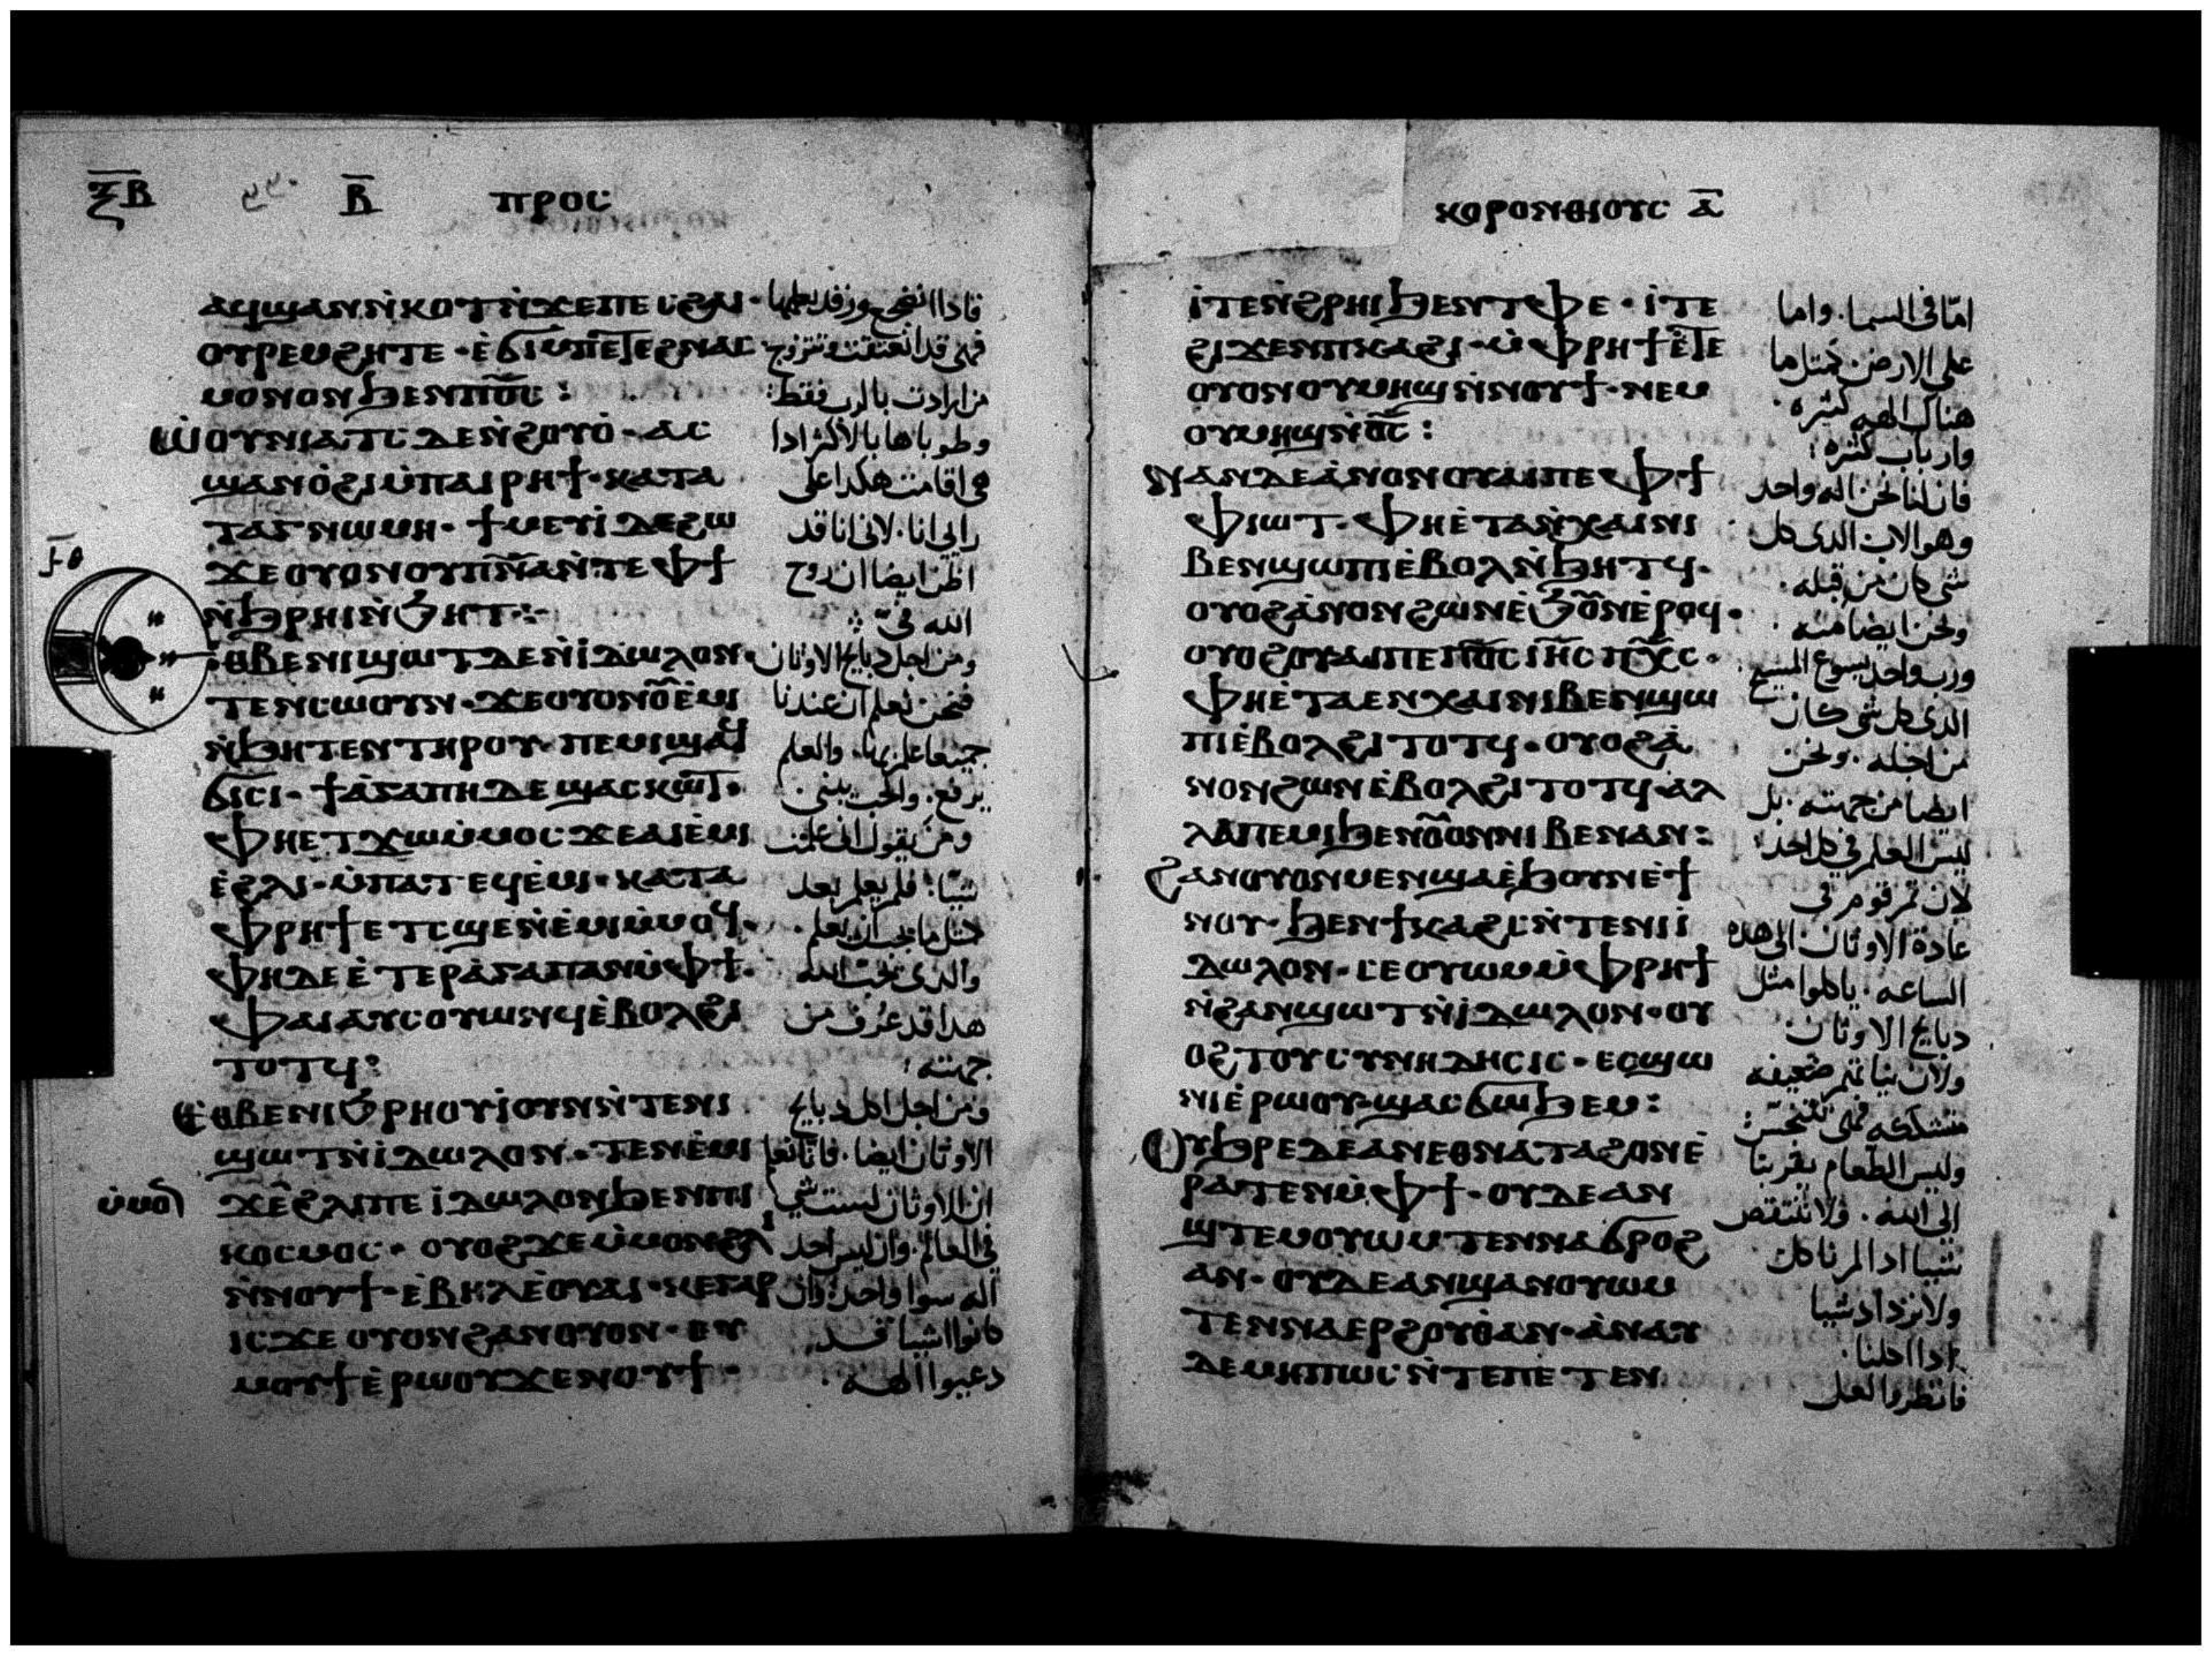 ⲝ̅ⲃ̅ ⲃ̅ ⲡⲣⲟⲥ
ⲁϥϣⲁⲛⲛ̀ⲕⲟⲧ ⲛ̀ϫⲉⲡⲉⲥϩⲁⲓ·
ⲟⲩⲣⲉⲙϩⲏⲧⲉ· ⲉ̀ϭⲓⲙ̀ⲡⲉⲧⲉϩⲛⲁⲥ
ⲙⲟⲛⲟⲛ ϧⲉⲛⲡⲟ̅ⲥ̅:
ⲱ̀ⲟⲩⲛⲓⲁⲧⲥ ⲇⲉⲛ̀ϩⲟⲩⲟ̀· ⲁⲥ
ϣⲁⲛⲟ̀ϩⲓⲙ̀ⲡⲁⲓⲣⲏϯ· ⲕⲁⲧⲁ
ⲧⲁⲅⲛⲱⲙⲏ· ϯⲙⲉⲩⲓ̀ ⲇⲉϩⲱ
ϫⲉⲟⲩⲟⲛⲟⲩⲡⲛ̅ⲁ̅ⲛ̀ⲧⲉⲫϯ
ⲛ̀ϧⲣⲏⲓⲛ̀ϧⲏⲧ:-
ⲉⲑⲃⲉⲛⲓϣⲱⲧ ⲇⲉⲛ̀ⲓ̀ⲇⲱⲗⲟⲛ·
ⲧⲉⲛⲥⲱⲟⲩⲛ· ϫⲉⲟⲩⲟⲛⲟ̅ⲉ̀ⲙⲓ
ⲛ̀ϧⲏⲧⲉⲛ ⲧⲏⲣⲟⲩ· ⲡⲉⲙⲓϣⲁϥ
ϭⲓⲥⲓ· ϯⲁ̀ⲅⲁⲡⲏ ⲇⲉ ϣⲁⲥⲕⲱⲧ·
ⲫⲏⲉⲧϫⲱⲙ̀ⲙⲟⲥ ϫⲉⲁⲓⲉ̀ⲙⲓ
ⲉ̀ϩⲗⲓ· ⲙ̀ⲡⲁⲧⲉϥⲉ̀ⲙⲓ· ⲕⲁⲧⲁ
ⲫⲣⲏϯ ⲉⲧⲥϣⲉⲛ̀ⲉ̀ⲙⲓⲙ̀ⲙⲟϥ·
ⲫⲏⲇⲉ ⲉ̀ⲧⲉⲣⲁ̀ⲅⲁⲡⲁⲛⲙ̀ⲫϯ·
ⲫⲁⲓⲁⲩⲥⲟⲩⲱⲛϥⲉ̀ⲃⲟⲗϩⲓ
ⲧⲟⲧϥ:
ⲉⲑⲃⲉⲛⲓϧⲣⲏⲟⲩⲓ̀ⲟⲩⲛⲛ̀ⲧⲉⲛⲓ
ϣⲱⲧⲛ̀ⲓ̀ⲇⲱⲗⲟⲛ· ⲧⲉⲛⲉ̀ⲙⲓ
ⲙ̀ⲙⲟⲛ
ϫⲉϩⲗⲓⲡⲉ ⲓ̀ⲇⲱⲗⲟⲛϧⲉⲛⲡⲓ
ⲕⲟⲥⲙⲟⲥ· ⲟⲩⲟϩϫⲉⲙ̀ⲙⲟⲛϩⲗⲓ
ⲛ̀ⲛⲟⲩϯ· ⲉ̀ⲃⲏⲗⲉ̀ⲟⲩⲁⲓ· ⲕⲉⲅⲁⲣ
ⲓⲥϫⲉ ⲟⲩⲟⲛϩⲁⲛⲟⲩⲟⲛ· ⲉⲩ
ⲙⲟⲩϯⲉ̀ⲣⲱⲟⲩϫⲉⲛⲟⲩϯ·
فاذا انضجع وزفد بعلها
فهى قد انعتقت تتزوج
من ارادت بالرب فقط:
وطوباها بالاكثر اذا
هى اقامت هكدا على
رايى انا. لانى انا قد
اظن ايضا ان روح
الله فىّ
ومن اجل دبايح الاوثان
فنحن نعلم ان عندنا
جميعا علم بها. والعلم
يرفع. والحب يبنى.
ومن يقول انى علمت
شيئا: فلم يعلم بعد
مثل ما يجب ان يعلم.
والدى يحب الله
هدا قد عُرف من
جهته:
ومن اجل اكل دبايح
الاوثان ايضا. فانا نعلم
ان الاوثان ليست شي
في العالم. وان ليس احد
اله سوا واحد: وان
كانوا اشيا قد
دعيوا الهه.
ⲕⲟⲣⲟⲛⲑⲓⲟⲩⲥ ⲁ̅
ⲓ̀ⲧⲉⲛ̀ϩⲣⲏⲓ ϧⲉⲛⲧⲫⲉ· ⲓ̀ⲧⲉ
ϩⲓϫⲉⲛⲡⲕⲁϩⲓ· ⲙ̀ⲫⲣⲏϯⲉ̀ⲧⲉ
ⲟⲩⲟⲛⲟⲩⲙⲏϣⲛ̀ⲛⲟⲩϯ· ⲛⲉⲙ
ⲟⲩⲙⲏϣⲛ̀ⲟ̅ⲥ̅:
ⲛⲁⲛⲇⲉⲁ̀ⲛⲟⲛⲟⲩⲁⲓⲡⲉ ⲫϯ
ⲫⲓⲱⲧ· ⲫⲏⲉ̀ⲧⲁⲛ̀ⲭⲁⲓⲛⲓ
ⲃⲉⲛϣⲱⲡⲓⲉ̀ⲃⲟⲗⲛ̀ϧⲏⲧϥ·
ⲟⲩⲟϩⲁ̀ⲛⲟⲛϩⲱⲛⲉ̀ϧⲟ̅ⲛⲉ̀ⲣⲟϥ·
ⲟⲩⲟϩⲟⲩⲁⲓⲡⲉⲡⲟ̅ⲥ̅ ⲓⲏ̅ⲥ̅ ⲡⲭ̅ⲥ̅·
ⲫⲏⲉ̀ⲧⲁⲉⲛⲭⲁⲓⲛⲓⲃⲉⲛϣⲱ
ⲡⲓⲉ̀ⲃⲟⲗϩⲓⲧⲟⲧϥ· ⲟⲩⲟϩⲁ̀
ⲛⲟⲛϩⲱⲛⲉ̀ⲃⲟⲗϩⲓⲧⲟⲧϥ· ⲁⲗ
ⲗⲁⲡⲉⲙⲓϧⲉⲛⲟ̅ⲟⲛⲛⲓⲃⲉⲛⲁⲛ:
ϩⲁⲛⲟⲩⲟⲛⲙⲉⲛϣⲁⲉ̀ϧⲟⲩⲛⲉ̀ϯ
ⲛⲟⲩ· ϧⲉⲛϯⲕⲁϩⲥⲛ̀ⲧⲉⲛⲓⲓ̀
ⲇⲱⲗⲟⲛ· ⲥⲉⲟⲩⲱⲙⲙ̀ⲫⲣⲏϯ
ⲛ̀ϩⲁⲛϣⲱⲧⲛ̀ⲓ̀ⲇⲱⲗⲟⲛ· ⲟⲩ
ⲟϩ ⲧⲟⲩⲥⲩⲛⲏⲇⲏⲥⲓⲥ· ⲉⲥϣⲱ
ⲛⲓⲉ̀ⲣⲱⲟⲩ· ϣⲁⲥϭⲱϧⲉⲙ:
ⲟⲩϧⲣⲉ ⲇⲉⲁⲛⲉⲑⲛⲁⲧⲁϩⲟⲛⲉ̀
ⲣⲁⲧⲉⲛⲙ̀ⲫϯ· ⲟⲩⲇⲉⲁⲛ
ϣⲧⲉⲙⲟⲩⲱⲙ ⲧⲉⲛⲛⲁϭⲣⲟϩ
ⲁⲛ· ⲟⲩⲇⲉⲁⲛϣⲁⲛⲟⲩⲱⲙ
ⲧⲉⲛⲛⲁⲉⲣϩⲟⲩⲟ̀ⲁⲛ· ⲁ̀ⲛⲁⲩ
ⲇⲉⲙⲏⲡⲱⲥ ⲛ̀ⲧⲉⲡⲉⲧⲉⲛ
امّا فى السما. واما
على الارض. كمثل ما
هناك الهه كثيره.
وارباب كثيره:
فان لنا نحن اله واحد
وهو الاب الدى كل
شى كان من قبله.
ونحن ايضا منه.
ورب واحد يسوع المسيح.
الدى كل شى كان
من اجله. ونحن
ايضا من جهته. بل
ليس العلم فى كل احد:
لان تم قوم فى
عادة الاوثان الى هده
الساعه. ياكلوا مثل
دبايح الاوثان
ولان نياتهم ضعيفه
متشككه فهى تتنجس:
وليس الطعام يقربنا
الى الله. ولا ننتقص
شيا ادا لم ناكل
ولا نزداد شيا
ادا اكلنا.
فانظروا لعل